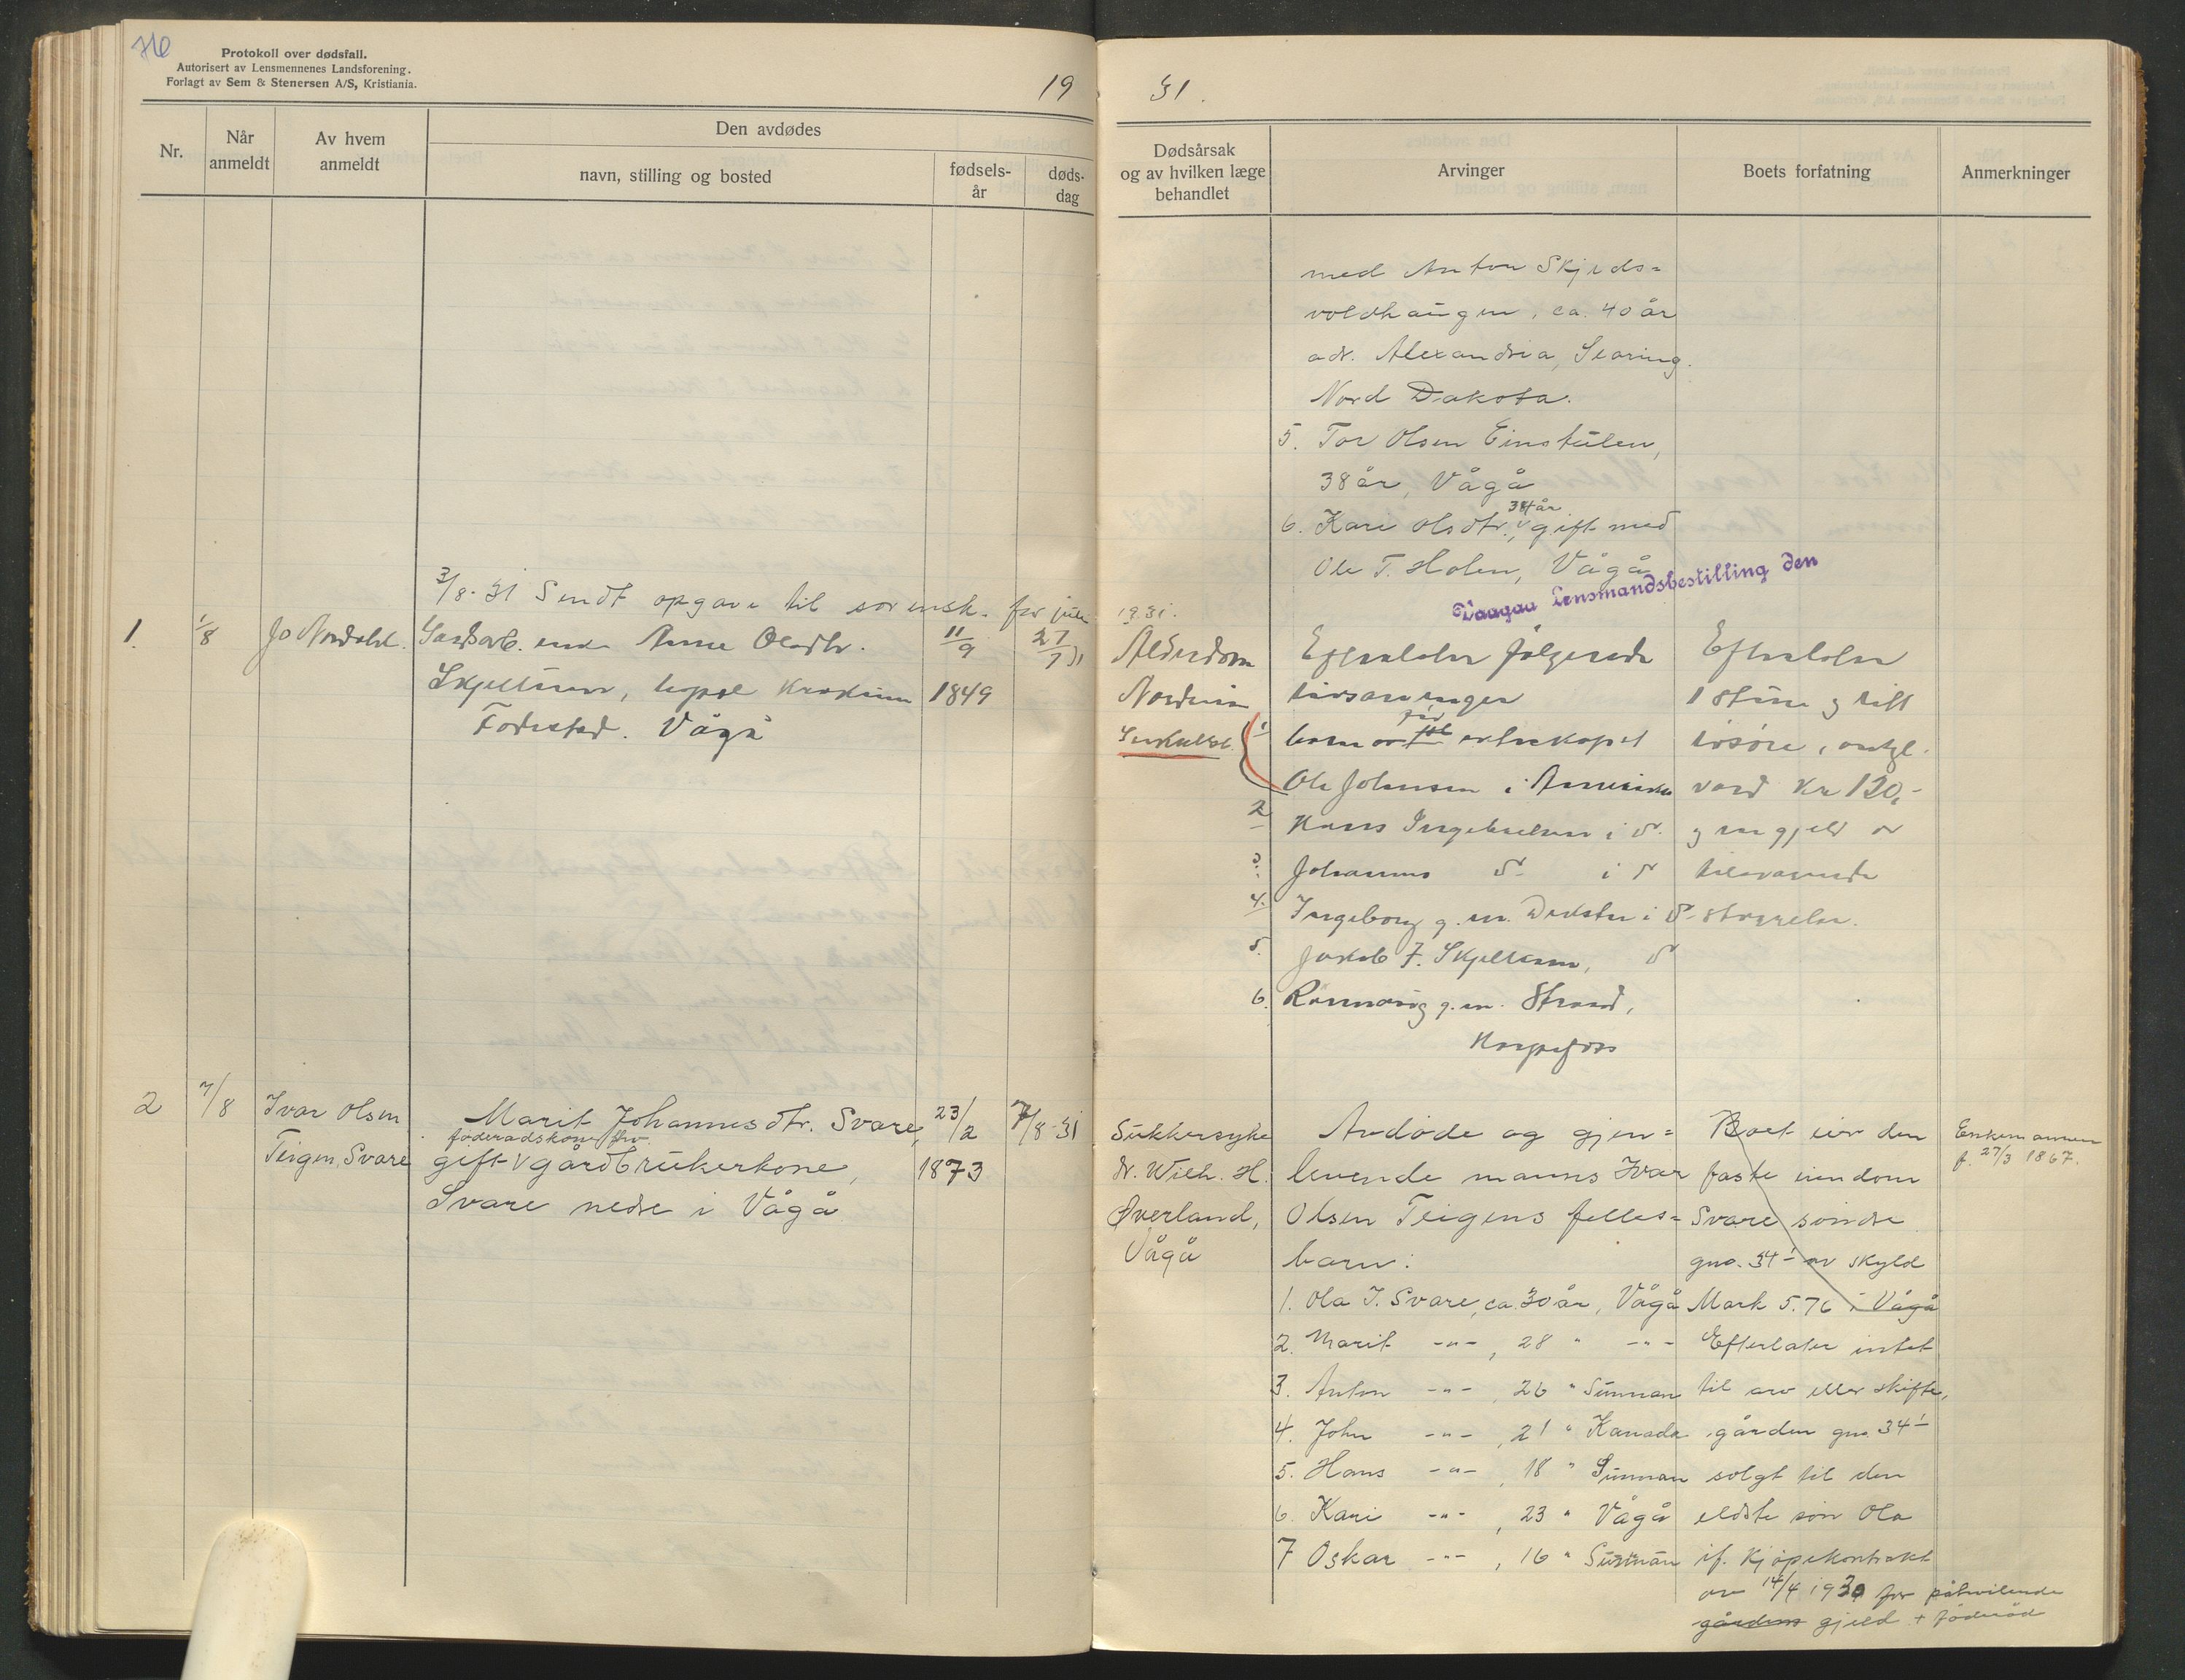 Protokoll over dødsfall.
Autorisert av Lensmennenes Landsforening.
Forlagt av Sem & Stenersen A/S, Kristiania.
19
31.
Nr.
Når anmeldt
Av hvem anmeldt
Den avdødes
navn, stilling og bosted
fødsels-år
døds-dag
Dødsårsak og av hvilken læge behandlet
Arvinger
Boets forfatning
Anmerkninger
med Anton Skjeds=
voldhaugen, ca. 40 år
adr. Alexandria,
Nord Dakota.
5. Tor Olsen Einstulen,
38 år, Vågå
34 år
6. Kari Olsdtr., gift med
Ole T. Holen, Vågå
Vaagaa Lensmandsbestilling den
3/8-31 Sendt opgave til sorensk. for juli 1931.
1. 1/8 Jo Nordahl.
Anne Olsdtr.
Fodested. Vågå
11/9
1849
27/7 31
Alderdom
Efterlater følgende
livsarvinger
1 born av ekteskapet
Ole Johnsen i Amerika
2 Hans Ingebrektsen i do.
3. Johannes do. i do
4. Ingeborg g. m. i do
5. Jakob J. do
6. g. m. Strand,
Efterlater
1 stue og litt
løsøre, antgl.
verd Kr 120,-
og en gjeld av
tilsvarende
størrelse.
2 7/8 Ivar Olsen
Teigen, Svare
Marit Johannesdtr. Svare,
føderådskone frv.
gift v gårdbrukerkone,
Svare nedre i Vågå
23/2
1873
7/8-31
Sukkersyke
dr. Wilh. H.
Øverland,
Vågå
Avdøde og gjen=
levende manns Ivar
Olsen Teigens felles=
barn:
1. Ola I. Svare, ca. 30 år, Vågå
2. Marit -"-, 28 " -"-
3. Anton -"-, 26 " Sunnan
4. John -"-, 21 " Kanada
5. Hans -"-, 18 " Sunnan
6. Kari -"-, 23 " Vågå
7 Oskar -"-, 16 " Sunnan
Boet eier den
faste eiendom
Svare søndre
gno. 34 1 av skyld
Mark 5.76 i Vågå
Efterlater intet
til arv eller skifte,
gården gno. 34 1
solgt til den
eldste søn Ola
if. kjøpekontrakt
av 14/4 1930 for påhvilende
gårdens gjeld + føderåd
Enkemannen
f. 27/3 1867.